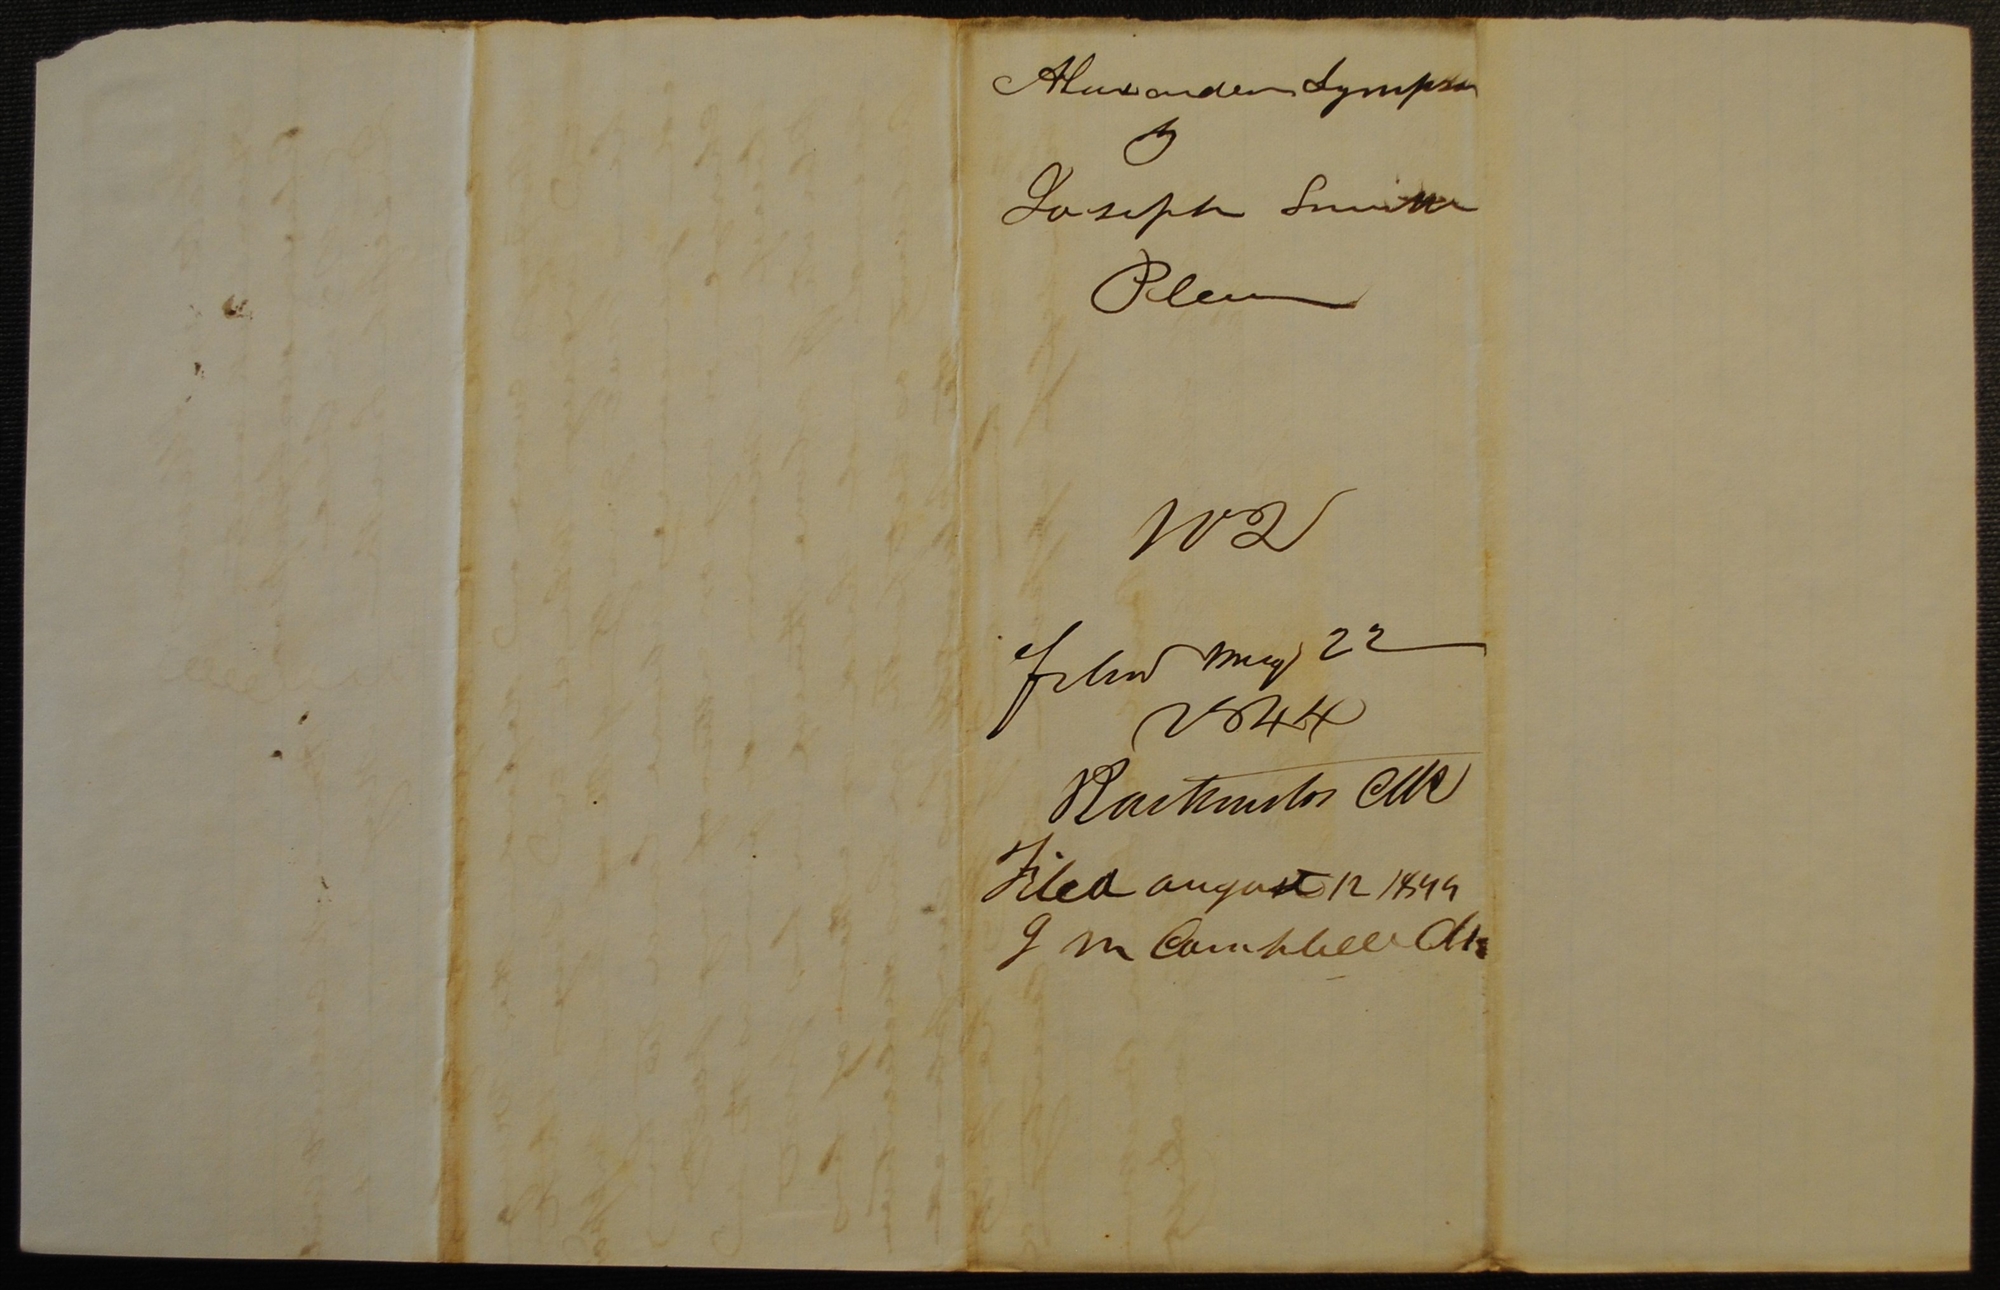 Alexander Sympson
vs
Joseph Smith
Plea
102
Filed May 22
1844
Backenstos Clk
Filed august 12 1844
G M Campbell Clk